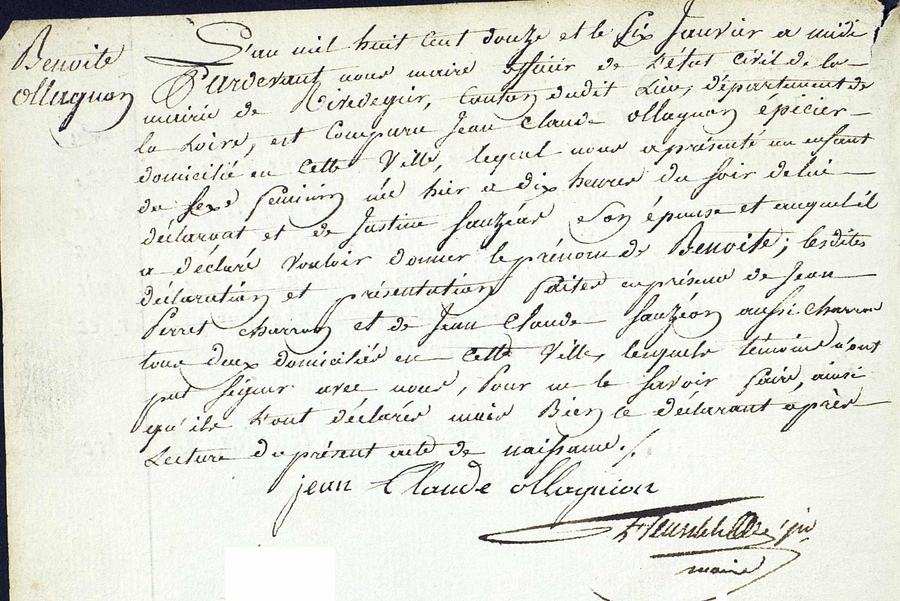 Benoite
ollagnon
L'an mil huit cent douze et le six Janvier a midi
Pardevant nous maire officier de l'état civil de la
mairie de Rivedegier, canton dudit Lieu, département de
la Loire, est comparu Jean Claude ollagnon epicier
domicilié en cette ville, lequel nous a présenté un enfant
du sexe féminin née hier a dix heures du soir de lui
déclarant et de Justine Sauzéas son épouse et auquel il
a déclaré vouloir donner le prénom de Benoite; lesdites
déclaration et présentation faites en présence de Jean
Perret charron et de Jean Claude Sauzéas aussi charron
tous deux domiciliés en cette ville, lesquels témoins n'ont
put signer avec nous, pour ne le savoir faire, ainsi
qu'ils l'ont déclarés mais Bien le déclarant après
Lecture du présent acte de naissance./.
jean Claude ollagnion
maire